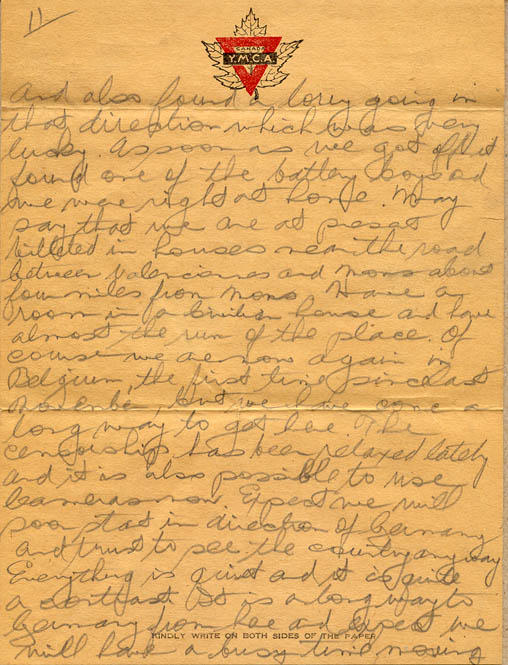 11
CANADA
Y.M.C.A.
And also found a lorry going in
that direction which was very
lucky. As soon as we got off it
found one of the battery boys ad
we were right at home. May
say that we are at preset
billeted in houses near the road
between Valenciennes and Mons about
four miles from Mons. Have a
room in a civilian house and have
almost the run of the place. Of
course we are now again in
Belgium, the first time since last
November, but we have come a
long way to get here. The
censorship has been relaxed lately
and it is also possible to use
cameras now. Expect we will
soon start in direction of Germany
and trust to see the country any way
Everything is quiet and it is quite
a contrast. It is a long way to
Germany from here ad expect we
KINDLY WRITE ON BOTH SIDES OF THE PAPER
will have a busy time moving